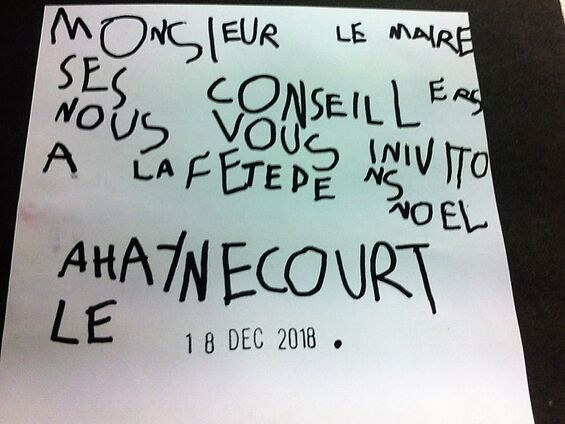 MONSIEUR LE MAIRE
SES CONSEILLERS
NOUS VOUS INIVITONS
A LA FÊTE DE NOEL
A HAYNECOURT
LE 18 DEC 2018.